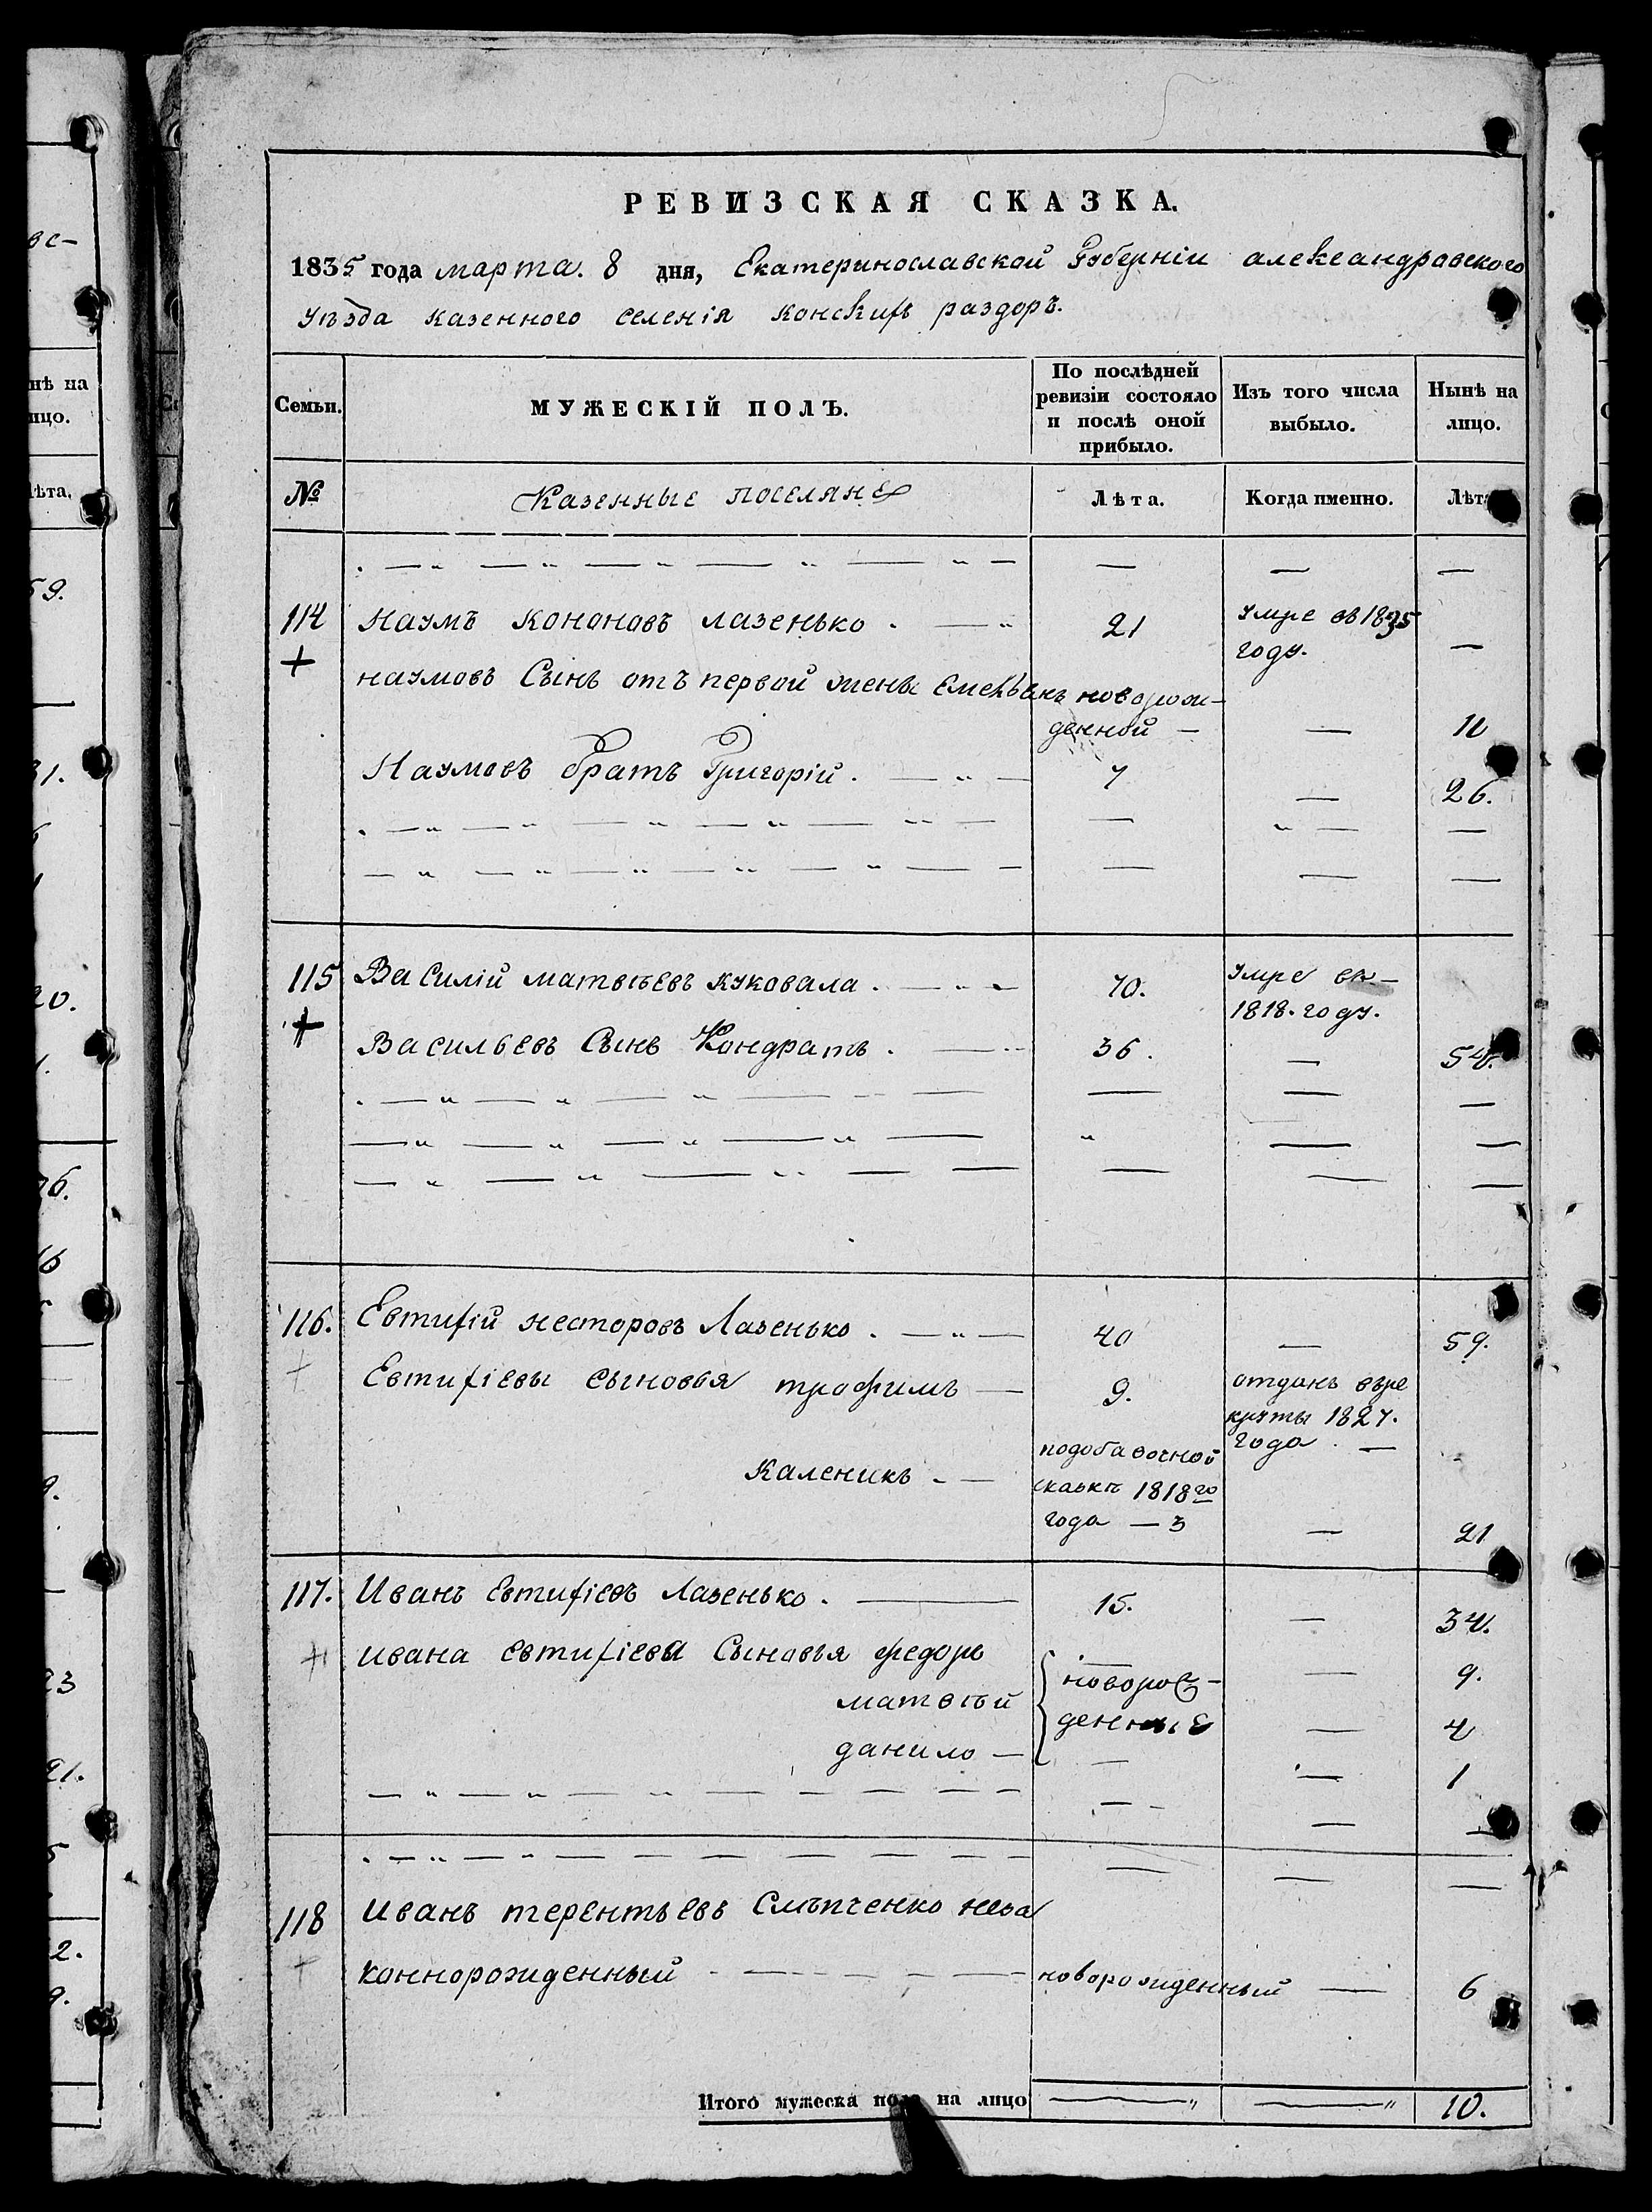 РЕВИЗСКАЯ СКАЗКА.
1835 года марта. 8 дня, Екатеринославской Губерніи александравского
Уѣзда казенного селенія конскихъ раздоръ.
Семьи. МУЖЕСКІЙ ПОЛЪ. По послѣдней ревизіи состояло и послѣ оной прибыло. Изъ того числа выбыло. Нынѣ на лицо.
№ Казенные поселяне Лѣта. Когда именно. Лѣта
114 Наумъ Кононовъ лазенько. 21 Умре въ 1835
году. —
наумовъ Сынъ отъ первой жены Емельянъ новорож-
денной — — 14
Наумовъ братъ Григорій. 7 — 26.
115 Василій матвѣевъ куковала. 70. Умре въ —
1818. году.
Васильевъ Сынъ Кондратъ. 36. — 54.
116. Евтифій несторовъ Лазенько. 40 — 59.
Евтифіевы сыновья трофимъ — 9. отданъ въре
круты 1827.
года. —
Каленикъ — подобавочной
сказкѣ 1818го
года — 3 — 21
117. Иванъ Евтифіевъ Лазенько. 15. — 34.
ивана евтифіева Сыновья федоръ новорож- — 9.
матвѣй денные — 4
данило — — 1
118 Иванъ терентьевъ Слѣпченко неза
коннорожденный новорожденный — 6
Итого мужеска пола на лицо 10.